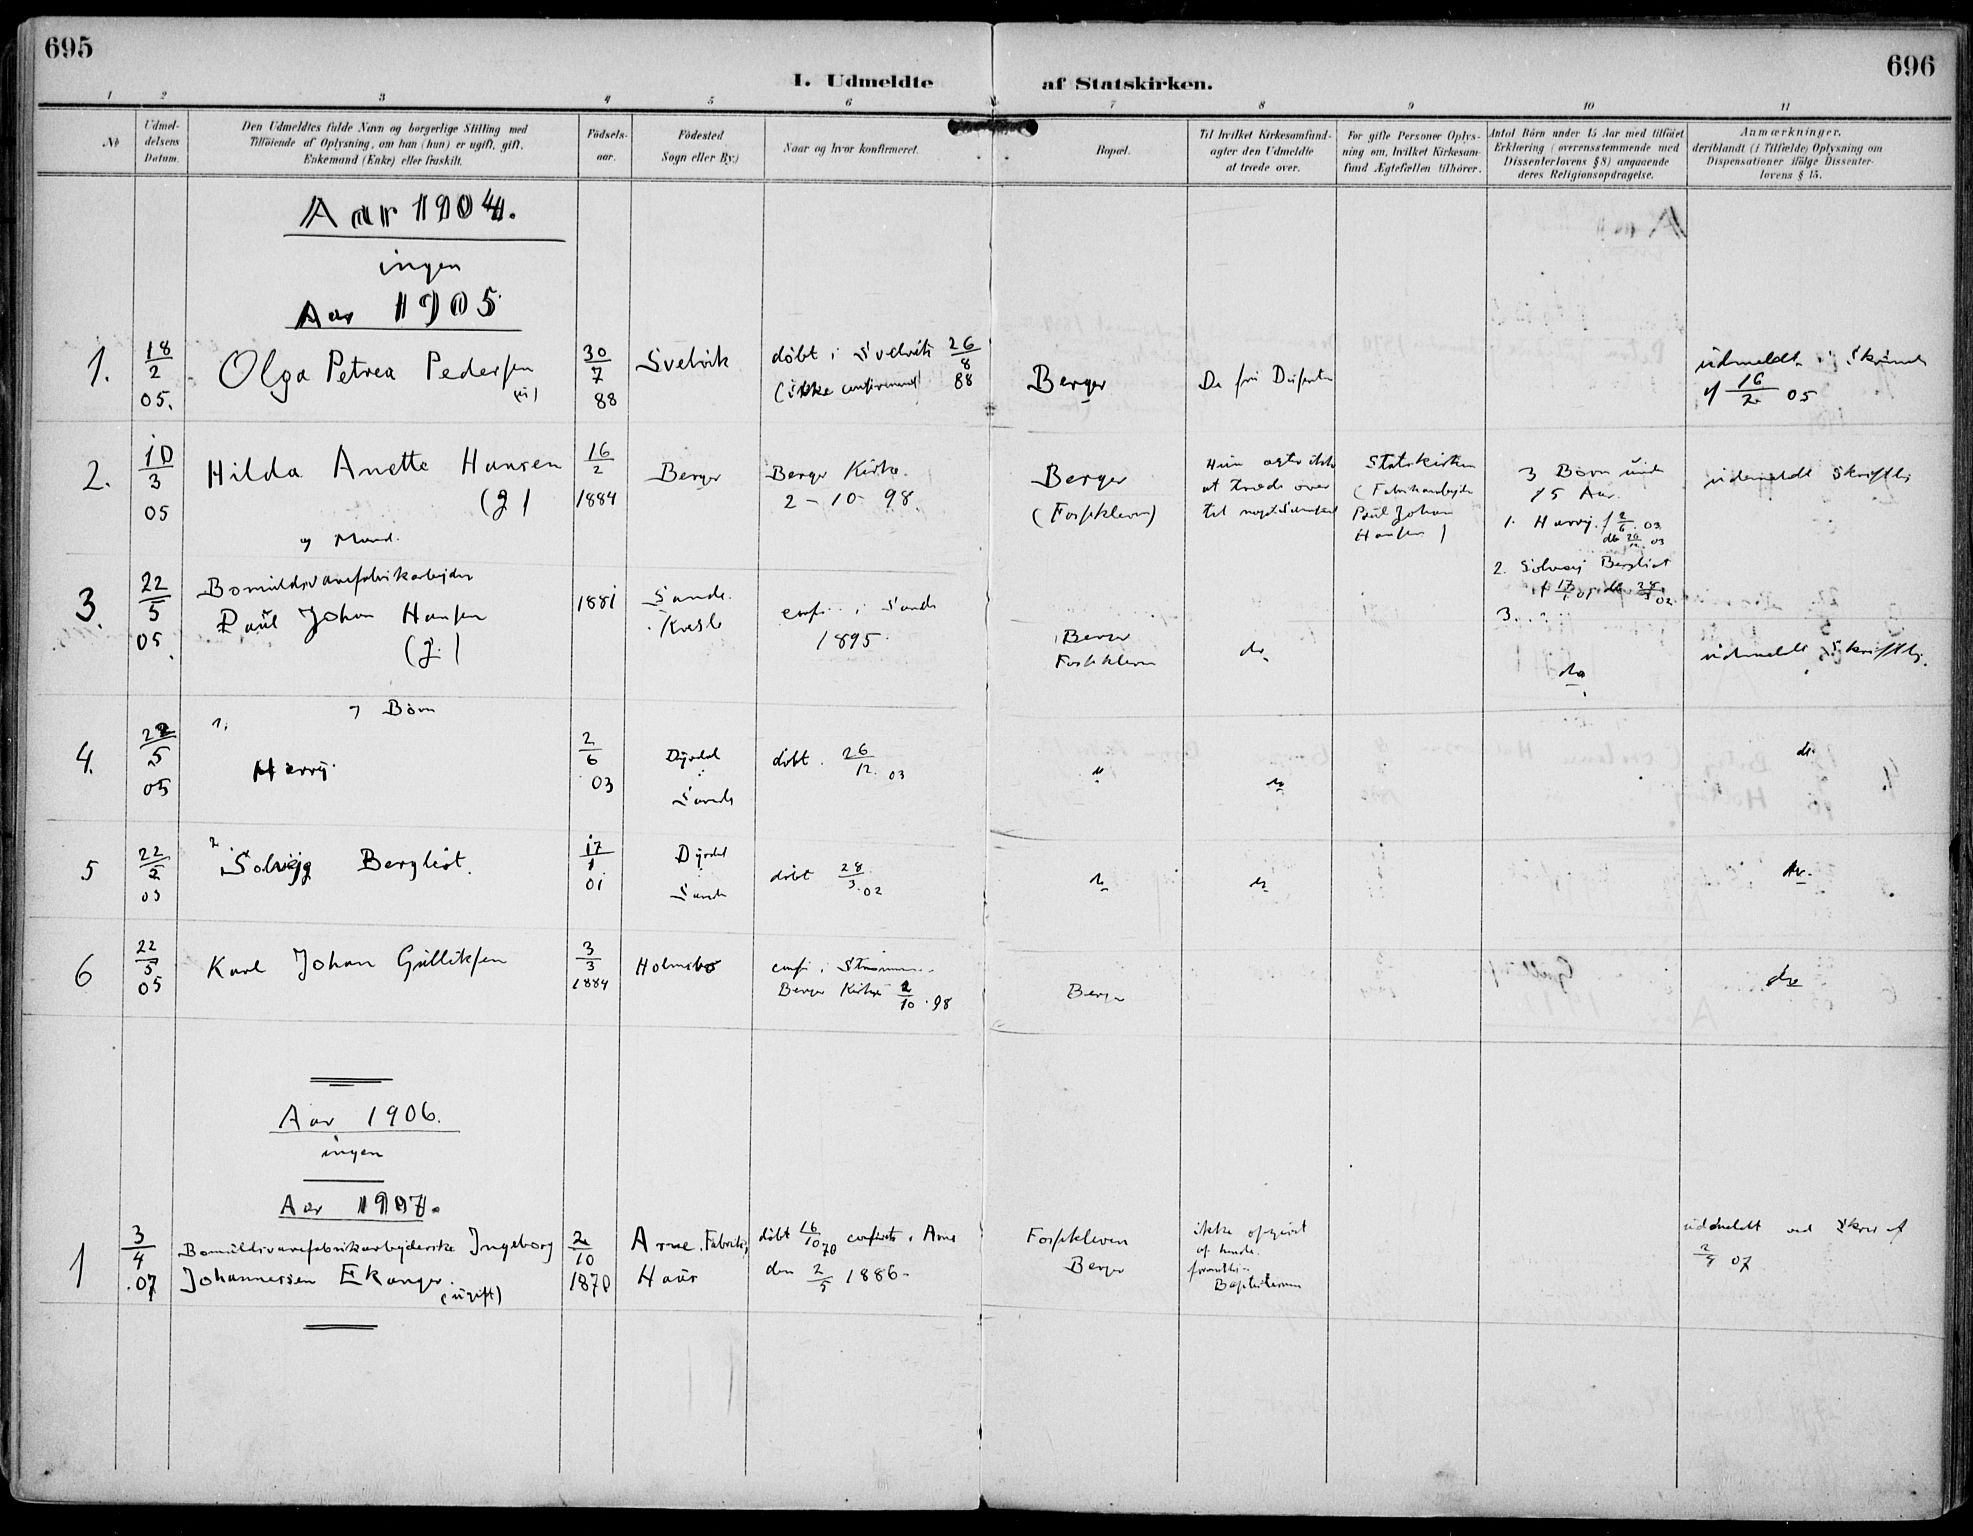 695
696
I. Udmeldte af Statskirken.
1 2 3 4 5 6 7 8 9 10 11
No
Udmel-
delsens
Datum.
Den Udmeldtes fulde Navn og borgerlige Stilling med
Tilföiende af Oplysning, om han (hun) er ugift, gift,
Enkemand (Enke) eller fraskilt.
Födsels-
aar.
Födested
Sogn eller By.)
Naar og hvor konfirmeret.
Bopæl.
Til hvilket Kirkesamfund
agter den Udmeldte
at træde over.
For gifte Personer Oplys-
ning om, hvilket Kirkesam-
fund Ægtefællen tilhörer.
Antal Börn under 15 Aar med tilföiet
Erklæring (overensstemmende med
Dissenterlovens § 8) angaaende
deres Religionsopdragelse.
Anmærkninger,
deriblandt (i Tilfælde) Oplysning om
Dispensationer ifölge Dissenter-
lovens § 15.
Aar 1904.
ingen
Aar 1905
1.
18/2
05.
Olga Petrea Pedersen
30/7
88
Svelvik
døbt i Svelvik 26/8 88
(ikke confirmeret)
Berger
De fri
udmeldt
16/2 05
2.
10/3
05
Hilda Anette Hansen
(g)
16/2
1884
Berger
Berger Kirke
2-10-98.
Berger
(Fossekleven)
Hun agter ikke
at træde over
til noget Samfund
Statskirken
(Fabrikarbeider
Paul Johan
Hansen)
3 Børn under
15 Aar.
1. Harry f 2/6 03
db 26/12 03
2. Solveig Bergliot
f 17/1 01 db 28/3 02
3...
udmeldt Skriftlig
og Mand.
3.
22/5
05.
Bomuldsvarefabrikarbejder
Paul Johan Hansen
(g.)
1881
Sande
conf. i Sande
1895.
Berger
Fossekleven
do
do
udmeldt Skriftlig.
og Børn
4.
22/5
05
1.
Harry
2/6
03
Dyrdal
Sande
døbt 26/12 03
"
do
do
5
22/5
05
2
Solveig Bergliot.
17/1
01
Dyrdal
Sande
døbt 28/3 02
do
do
do.
6
22/5
05
Karl Johan Gulliksen
3/3
1884
Holmsbo
conf. i
Berger Kirke 2/10 98
Berger
do
Aar 1906.
ingen
Aar 1907.
1
3/4
07
Bomuldsvarefabrikarbejderske Ingeborg
Johannessen Ekanger.
(ugift)
2/10
1870
Arne Fabrik,
Haus
døbt 16/10 70 confirm. i Arne
den 2/5 1886-
Fossekleven
Berger
ikke opgivet
af hende.
Baptisterne
udmeldt ved Skriv. af
2/4 07